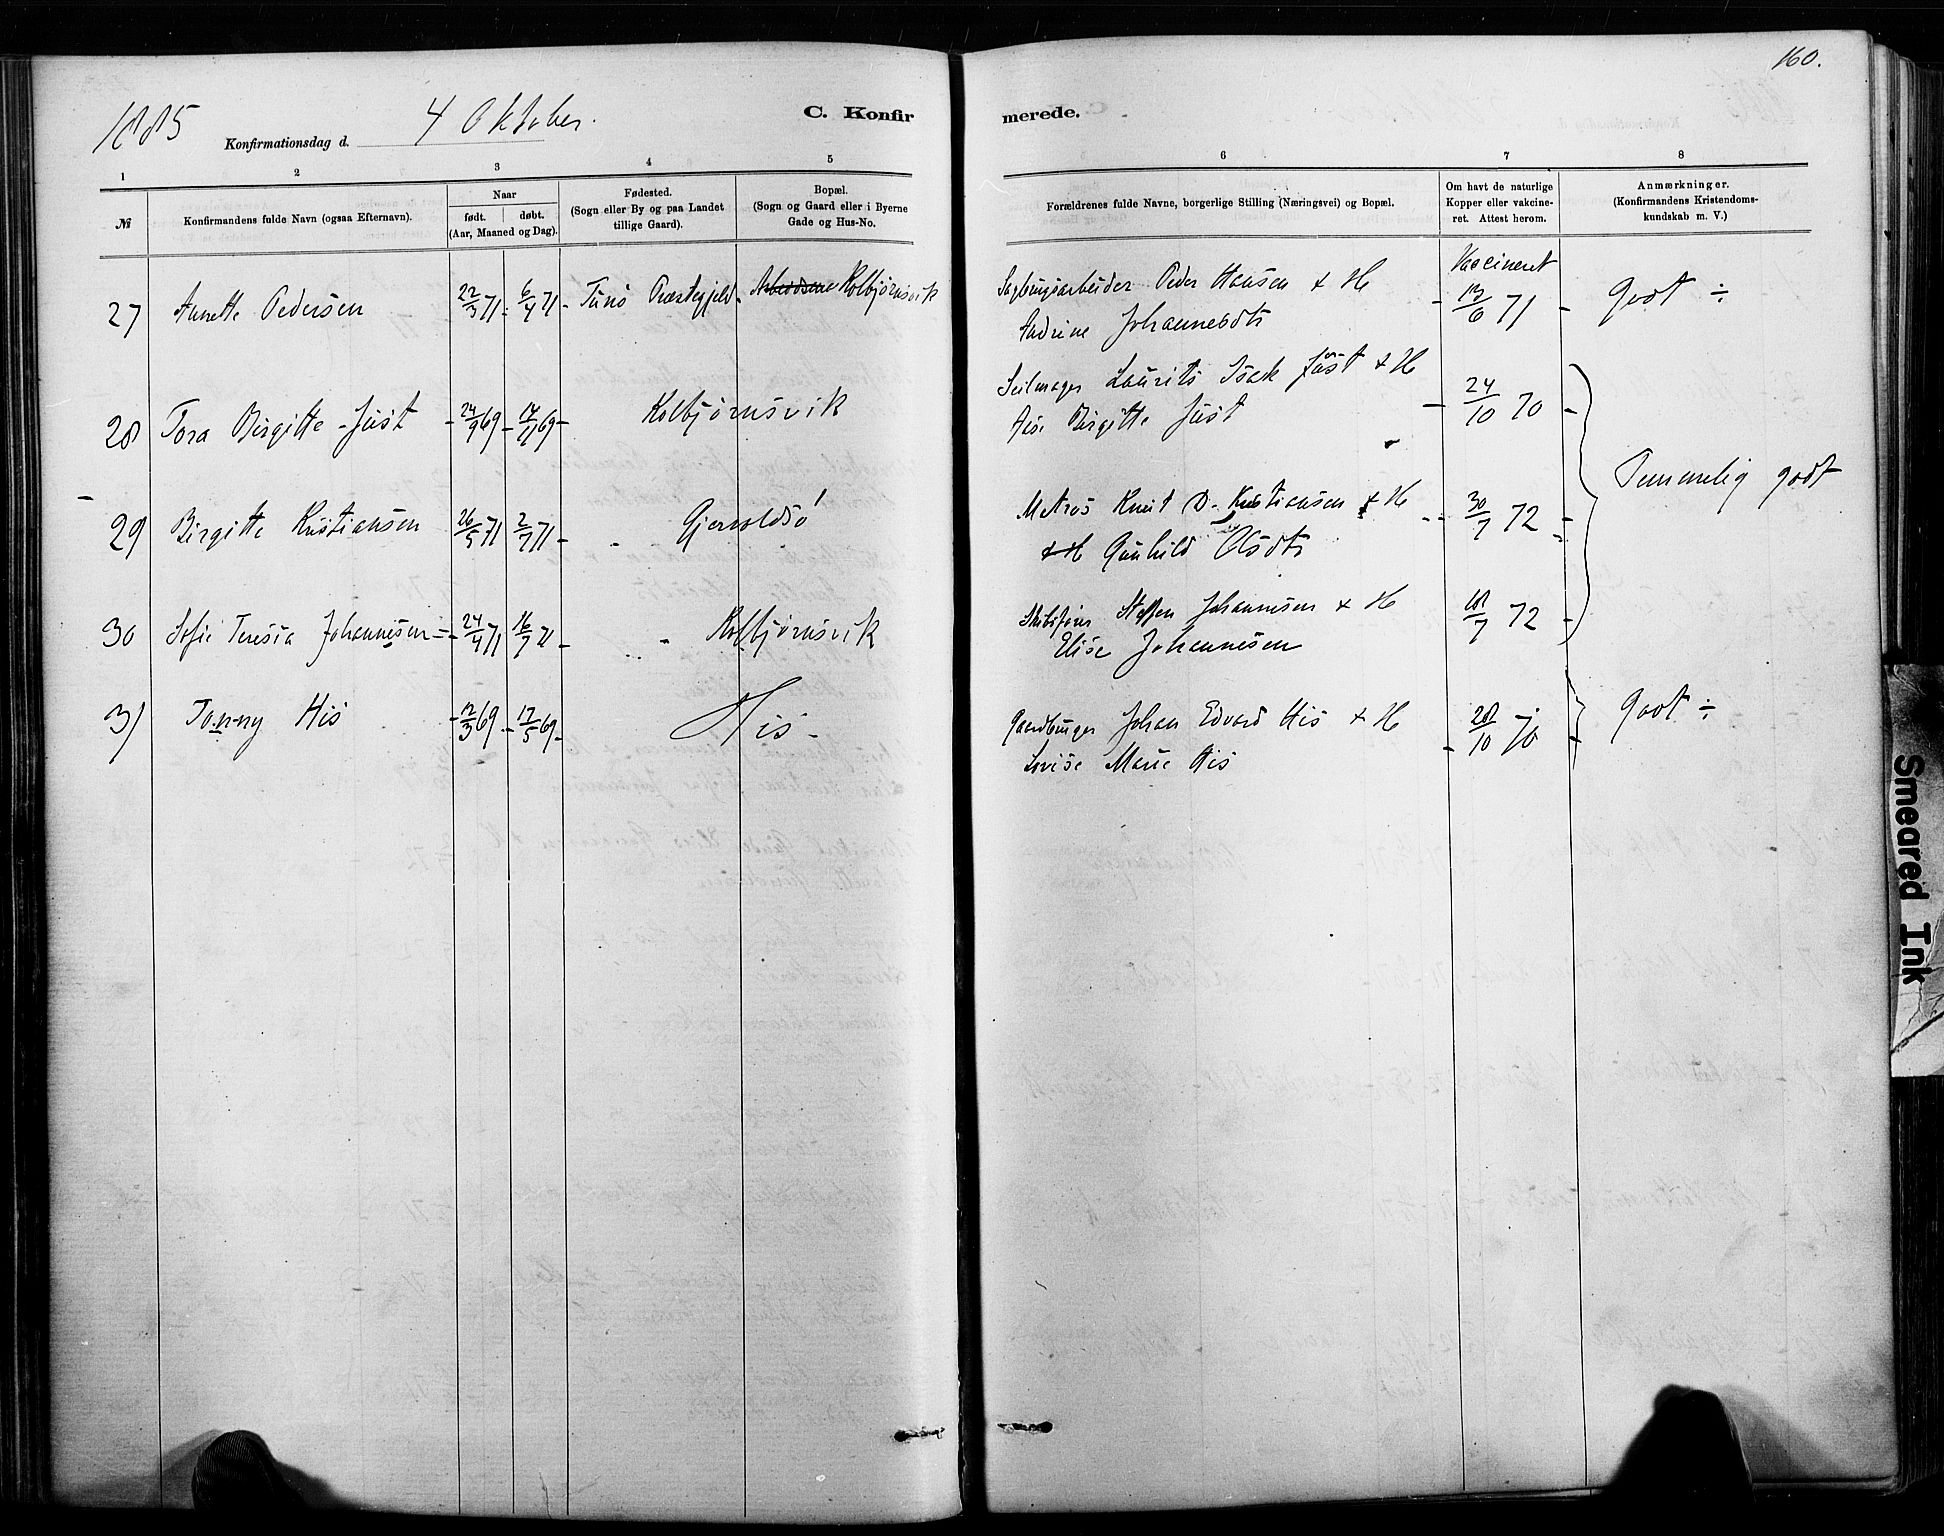 160.
1885
Konfirmationsdag d. 4 Oktober.
C. Konfirmerede.
1 2 3 4 5 6 7 8
№
Konfirmandens fulde Navn (ogsaa Efternavn).
Naar
født. døbt.
(Aar, Maaned og Dag).
Fødested.
(Sogn eller By og paa Landet
tillige Gaard).
Bopæl.
(Sogn og Gaard eller i Byerne
Gade og Hus-No.
Forældrenes fulde Navne, borgerlige Stilling (Næringsvei) og Bopæl.
Om havt de naturlige
Kopper eller vakcine-
ret. Attest herom.
Anmærkninger.
(Konfirmandens Kristendoms-
kundskab m. V.)
Vaccineret
27 Annette Pedersen 22/3 71 6/4 71 Prestegjeld Kolbjørnsvik
Sagbrugsarbeider Peder Hansen + H
Andrine Johannesdtr
13/6 71 Godt ÷
28 Tora Birgitte Just 24/9 69 14/11 69 Kolbjørnsvik
Seilmager Laurits Isack Just + H
Birgitte Just
24/10 70
Temmelig godt
29 Birgitte Kristiansen 26/5 71 2/7 71 Gjervoldsø
Matros Knut O. Kristiansen + H
+ H Gunhild Olsdtr
30/7 72
30 Sofie Teresia Johannesen 24/4 71 16/7 71 Kolbjørnsvik
Steffen Johannesen + H
Elise Johannesen
18/7 72
31 Tonny His 12/3 69 17/5 69 His
Gaardbruger Johan Edvard His + H
Lovise Marie His
28/10 70 Godt ÷
Smeared Ink